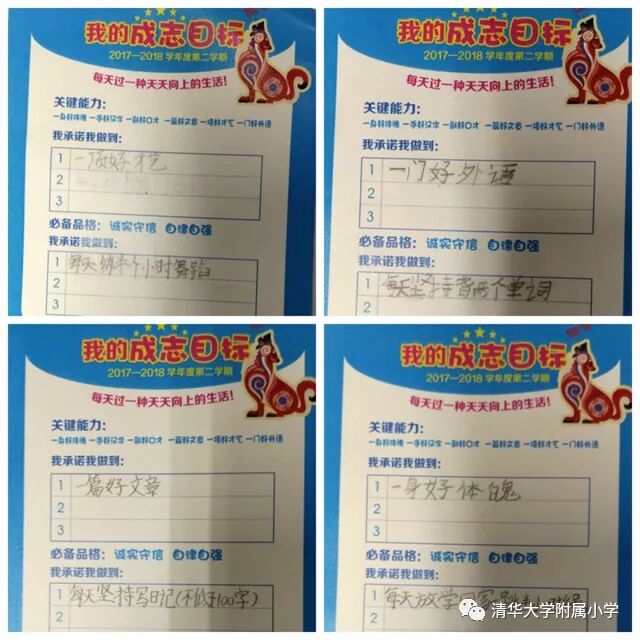 我的成志目标
2017-2018学年度第二学期
每天过一种天天向上的生活!
关键能力:
一身好体魄 一手好汉字 一副好口才 一篇好文章 一项好才艺 一门好外语
我承诺我做到:
1 一项好才艺
2
3
必备品格: 诚实守信 自律自强
我承诺我做到:
1 每天练半个小时舞蹈
2
3
我的成志目标
2017-2018学年度第二学期
每天过一种天天向上的生活!
关键能力:
一身好体魄 一手好汉字 一副好口才 一篇好文章 一项好才艺 一门好外语
我承诺我做到:
1 一门好外语
2
3
必备品格: 诚实守信 自律自强
我承诺我做到:
1 每天坚持背两个单词
2
3
我的成志目标
2017-2018学年度第二学期
每天过一种天天向上的生活!
关键能力:
一身好体魄 一手好汉字 一副好口才 一篇好文章 一项好才艺 一门好外语
我承诺我做到:
1 一篇好文章
2
3
必备品格: 诚实守信 自律自强
我承诺我做到:
1 每天坚持写日记(不低于100字)
2
我的成志目标
2017-2018学年度第二学期
每天过一种天天向上的生活!
关键能力:
一身好体魄 一手好汉字 一副好口才 一篇好文章 一项好才艺 一门好外语
我承诺我做到:
1 一身好体魄
2
3
必备品格: 诚实守信 自律自强
我承诺我做到:
1 每天放学
2
清华大学附属小学